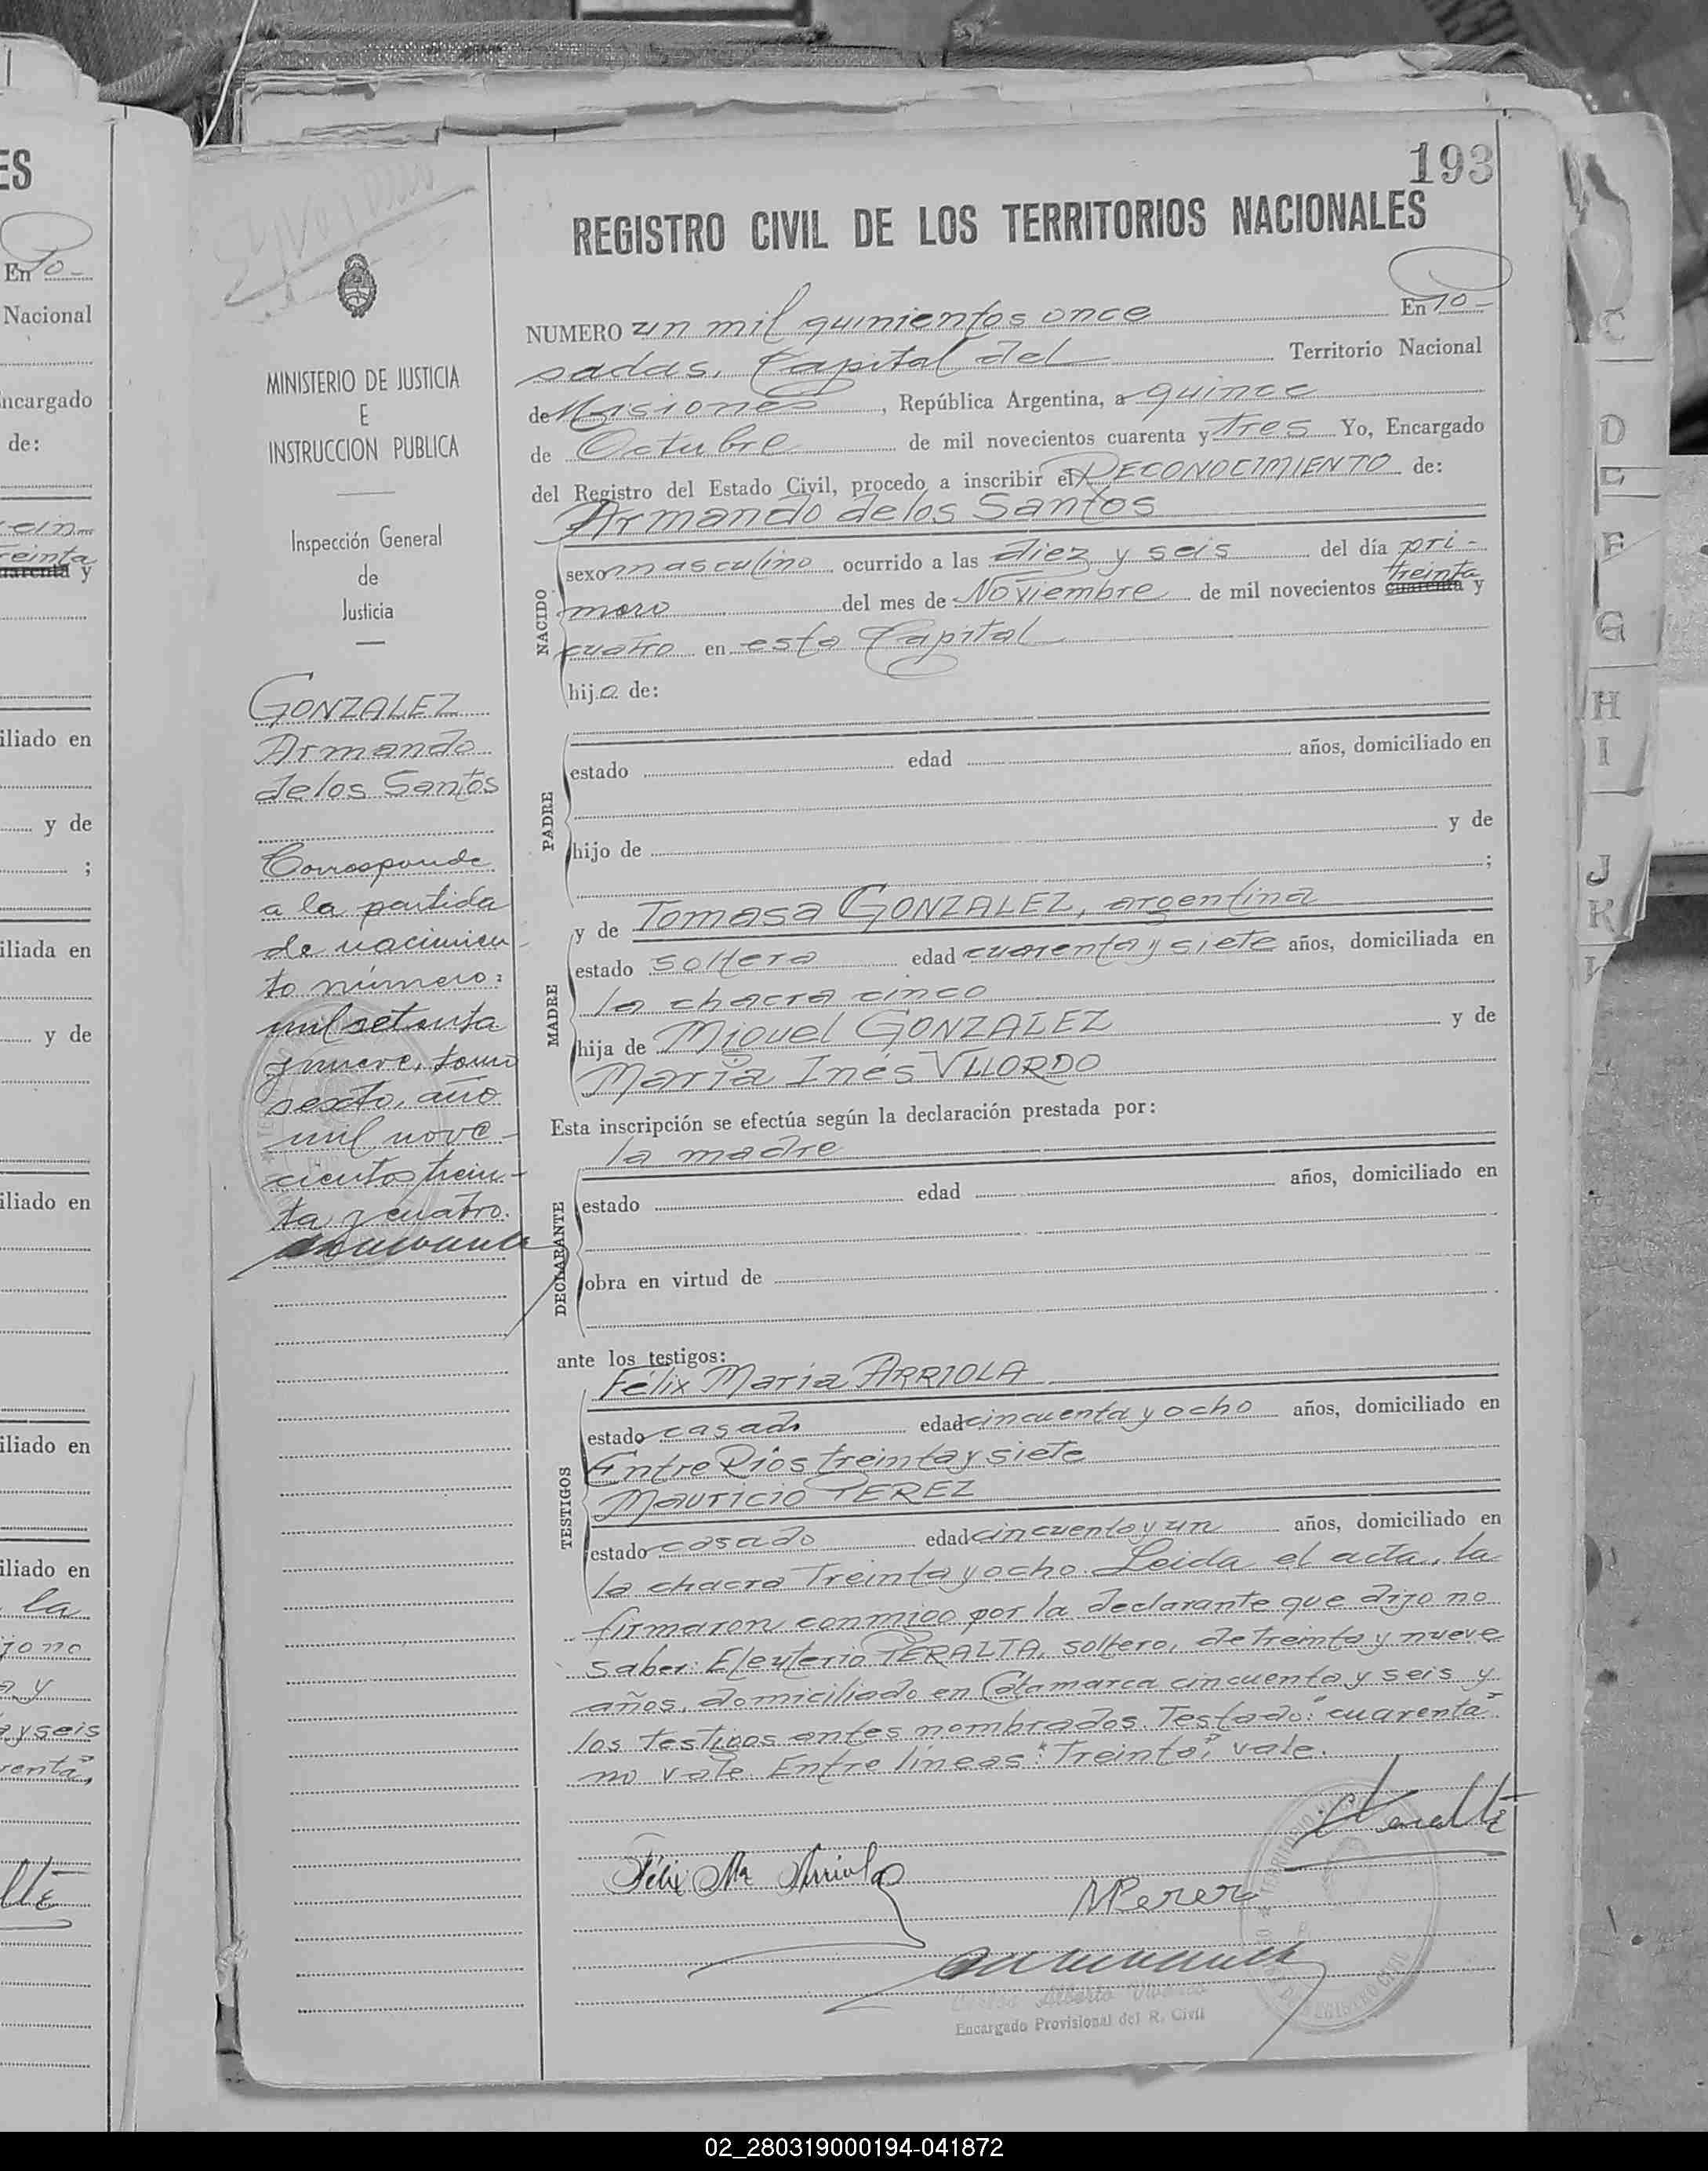 193
REGISTRO CIVIL DE LOS TERRITORIOS NACIONALES
NUMERO un mil quinientos once En Po-
sadas, Capital del Territorio Nacional
de Misiones, República Argentina, a quince
de Octubre de mil novecientos cuarenta y Tres Yo, Encargado
del Registro del Estado Civil, procedo a inscribir el RECONOCIMIENTO de:
Armando de los Santos
NACIDO
sexo masculino ocurrido a las diez y seis del día pri-
mero del mes de Noviembre de mil novecientos cuarenta treinta y
cuatro en esta Capital
hijo de:
PADRE
estado edad años, domiciliado en
hijo de y de
;
MADRE
y de Tomasa GONZALEZ, argentina
estado soltera edad cuarenta y siete años, domiciliada en
la chacra cinco
hija de Miguel GONZALEZ y de
María Inés VLLORDO
Esta inscripción se efectúa según la declaración prestada por:
la madre
DECLARANTE
estado edad años, domiciliado en
obra en virtud de
ante los testigos:
TESTIGOS
Félix María ARRIOLA
estado casado edad cincuenta y ocho años, domiciliado en
Entre Ríos treinta y siete
Mauricio PEREZ
estado casado edad cincuenta y un años, domiciliado en
la chacra Treinta y ocho. Leida el acta, la
firmaron conmigo por la declarante que dijo no
saber: Eleuterio PERALTA, soltero, de treinta y nueve
años, domiciliado en Catamarca cincuenta y seis y
los testigos antes nombrados. Testado: "cuarenta"
no vale. Entre líneas: "Treinta", vale.
Félix Ma Arriola
MPerez
Peralta
Alberto
Encargado Provisional del R. Civil
MINISTERIO DE JUSTICIA
E
INSTRUCCION PUBLICA
Inspección General
de
Justicia
GONZALEZ
Armando
de los Santos
Corresponde
a la partida
de nacimien-
to número:
mil setenta
y nueve, tomo
sexto, año
mil nove-
cientos trein-
ta y cuatro.
ES
En Po-
Nacional
ncargado
de:
treinta
cuarenta y
iliado en
y de
;
iliada en
y de
iliado en
iliado en
iliado en
la
jo no
y
a y seis
renta",
C
D
E
F
G
H
I
J
K
02_280319000194-041872